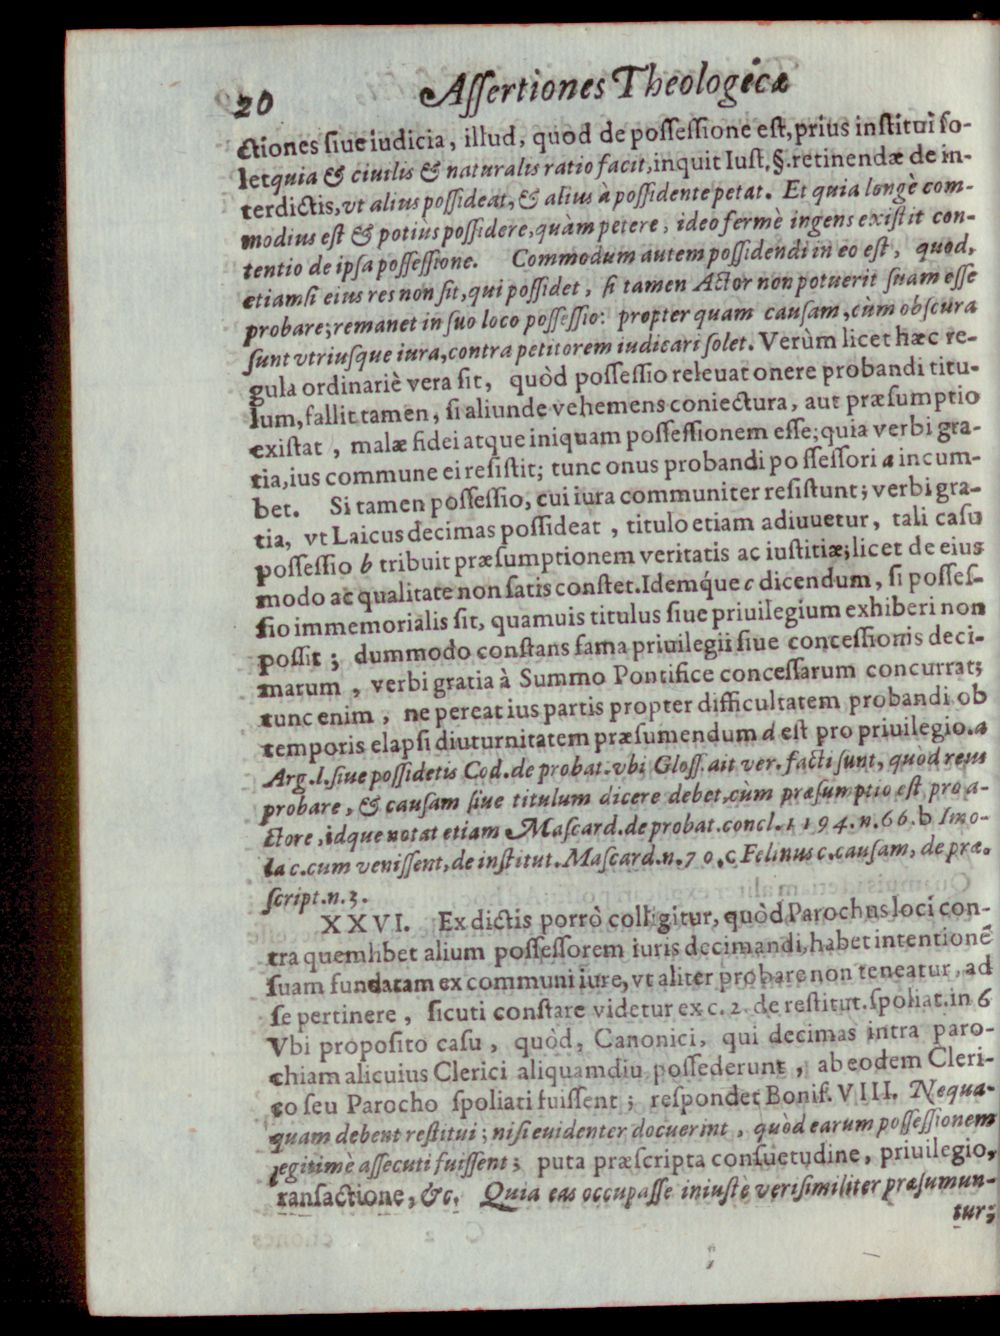 20 Aſſertiones Theologicæ
ctiones ſiue iudicia, illud, quod de poſſeſſione eſt, prius inſtitui ſo-
let quia & ciuilis & naturalis ratio facit, inquit Iuſt. §. retinendæ de in-
terdictis, vt alius poſſideat, & alius à poſſidente petat. Et quia longè com-
modius eſt & potiùs poſſidere, quàm petere, ideo fermè ingens exiſtit con-
tentio de ipſa poſſeſſione. Commodum autem poſſidendi in eo eſt, quod,
etiamſi eius res non ſit, qui poſſidet, ſi tamen Actor non potuerit ſuam eſſe
probare; remanet in ſuo loco poſſeſſio: propter quam cauſam, cùm obſcura
ſunt vtriuſque iura, contra petitorem iudicari ſolet. Verùm licet hæc re-
gula ordinariè vera ſit, quòd poſſeſſio releuat onere probandi titu-
lum, fallit tamen, ſi aliunde vehemens coniectura, aut præſumptio
exiſtat, malæ fidei atque iniquam poſſeſſionem eſſe; quia verbi gra-
tia, ius commune ei reſiſtit; tunc onus probandi poſſeſſori a incum-
bet. Si tamen poſſeſſio, cui iura communiter reſiſtunt; verbi gra-
tia, vt Laicus decimas poſſideat, titulo etiam adiuuetur, tali caſu
poſſeſſio b tribuit præſumptionem veritatis ac iuſtitiæ; licet de eius
modo ac qualitate non ſatis conſtet. Idemq́ue c dicendum, ſi poſſeſ-
ſio immemorialis ſit, quamuis titulus ſiue priuilegium exhiberi non
poſſit; dummodo conſtans fama priuilegii ſiue conceſſionis deci-
marum, verbi gratia à Summo Pontifice conceſſarum concurrat;
tunc enim, ne pereat ius partis propter difficultatem probandi ob
temporis elapſi diuturnitatem præſumendum d eſt pro priuilegio. a
Arg. l. ſiue poſſidetis Cod. de probat. vbi Gloſſ. ait ver. facti ſunt, quòd reus
probare, & cauſam ſiue titulum dicere debet, cùm præſumptio eſt pro a-
ctore, idque notat etiam Maſcard. de probat. concl. 1194. n. 66. b Imo-
la c. cum veniſſent, de inſtitut. Maſcard. n. 70. c Felinus c. cauſam, de præ-
ſcript. n. 3.
XXVI. Ex dictis porrò colligitur, quòd Parochus loci con-
tra quemlibet alium poſſeſſorem iuris decimandi, habet intentionē
ſuam fundatam ex communi iure, vt aliter probare non teneatur, ad
ſe pertinere, ſicuti conſtare videtur ex c. 2. de reſtitut. ſpoliat. in 6
Vbi propoſito caſu, quòd, Canonici, qui decimas intra paro-
chiam alicuius Clerici aliquamdiu poſſederunt, ab eodem Cleri-
co ſeu Parocho ſpoliati fuiſſent; reſpondet Bonif. VIII. Nequa-
quam debent reſtitui; niſi euidenter docuerint, quòd earum poſſeſſionem
legitimè aſſecuti fuiſſent; puta præſcripta conſuetudine, priuilegio,
ranſactione, &c. Quia eas occupaſſe iniuſtè veriſimiliter præſumun-
tur;